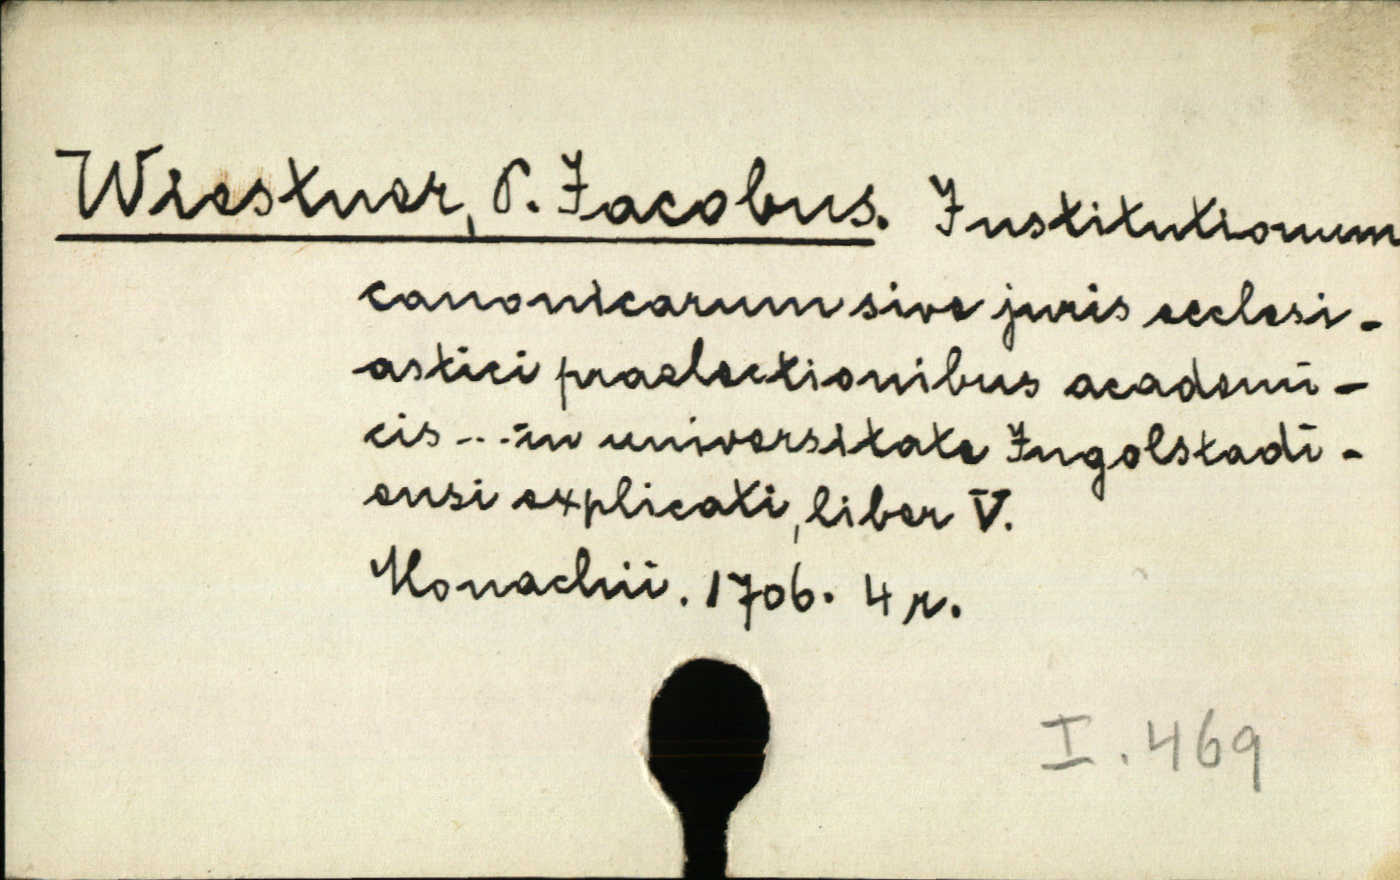 Wiestner, P. Jacobus. Institutionum
canonicarum sive juris ecclesi-
astici praelectionibus academi-
cis ... in universitate Ingolstadi-
ensi explicati, liber V.
Monachii. 1706. 4 r.
I. 469